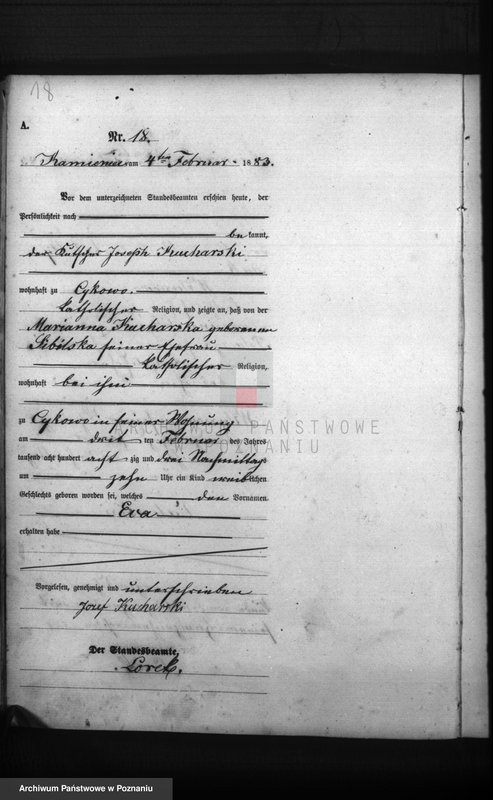 18
A.
Nr. 18.
Kamieniec am 4ten Februar 1883.
Vor dem unterzeichneten Standesbeamten erschien heute, der
Persönlichkeit nach
be kannt,
der Kutscher Joseph Kucharski
wohnhaft zu Cykowo.
katholischer Religion, und zeigte an, daß von der
Marianna Kucharska geborenen
seiner Ehefrau
katholischer Religion,
wohnhaft bei ihm
zu Cykowo in seiner Wohnung
am drit ten Februar des Jahres
tausend acht hundert acht zig und drei Nachmittag
um zehn Uhr ein Kind weib lichen
Geschlechts geboren worden sei, welches den Vornamen
Eva
erhalten habe
Vorgelesen, genehmigt und unterschrieben
Jozef Kucharski
Der Standesbeamte,
Lorek.
ARCHIWUM PAŃSTWOWE
W POZNANIU
Archiwum Państwowe w Poznaniu